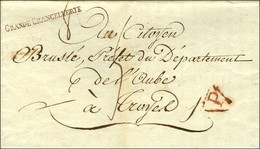 GRANDE CHANCELLERIE
Au Citoyen
Bruslé, Préfet du Département
de l'Aube
à Troyes
P